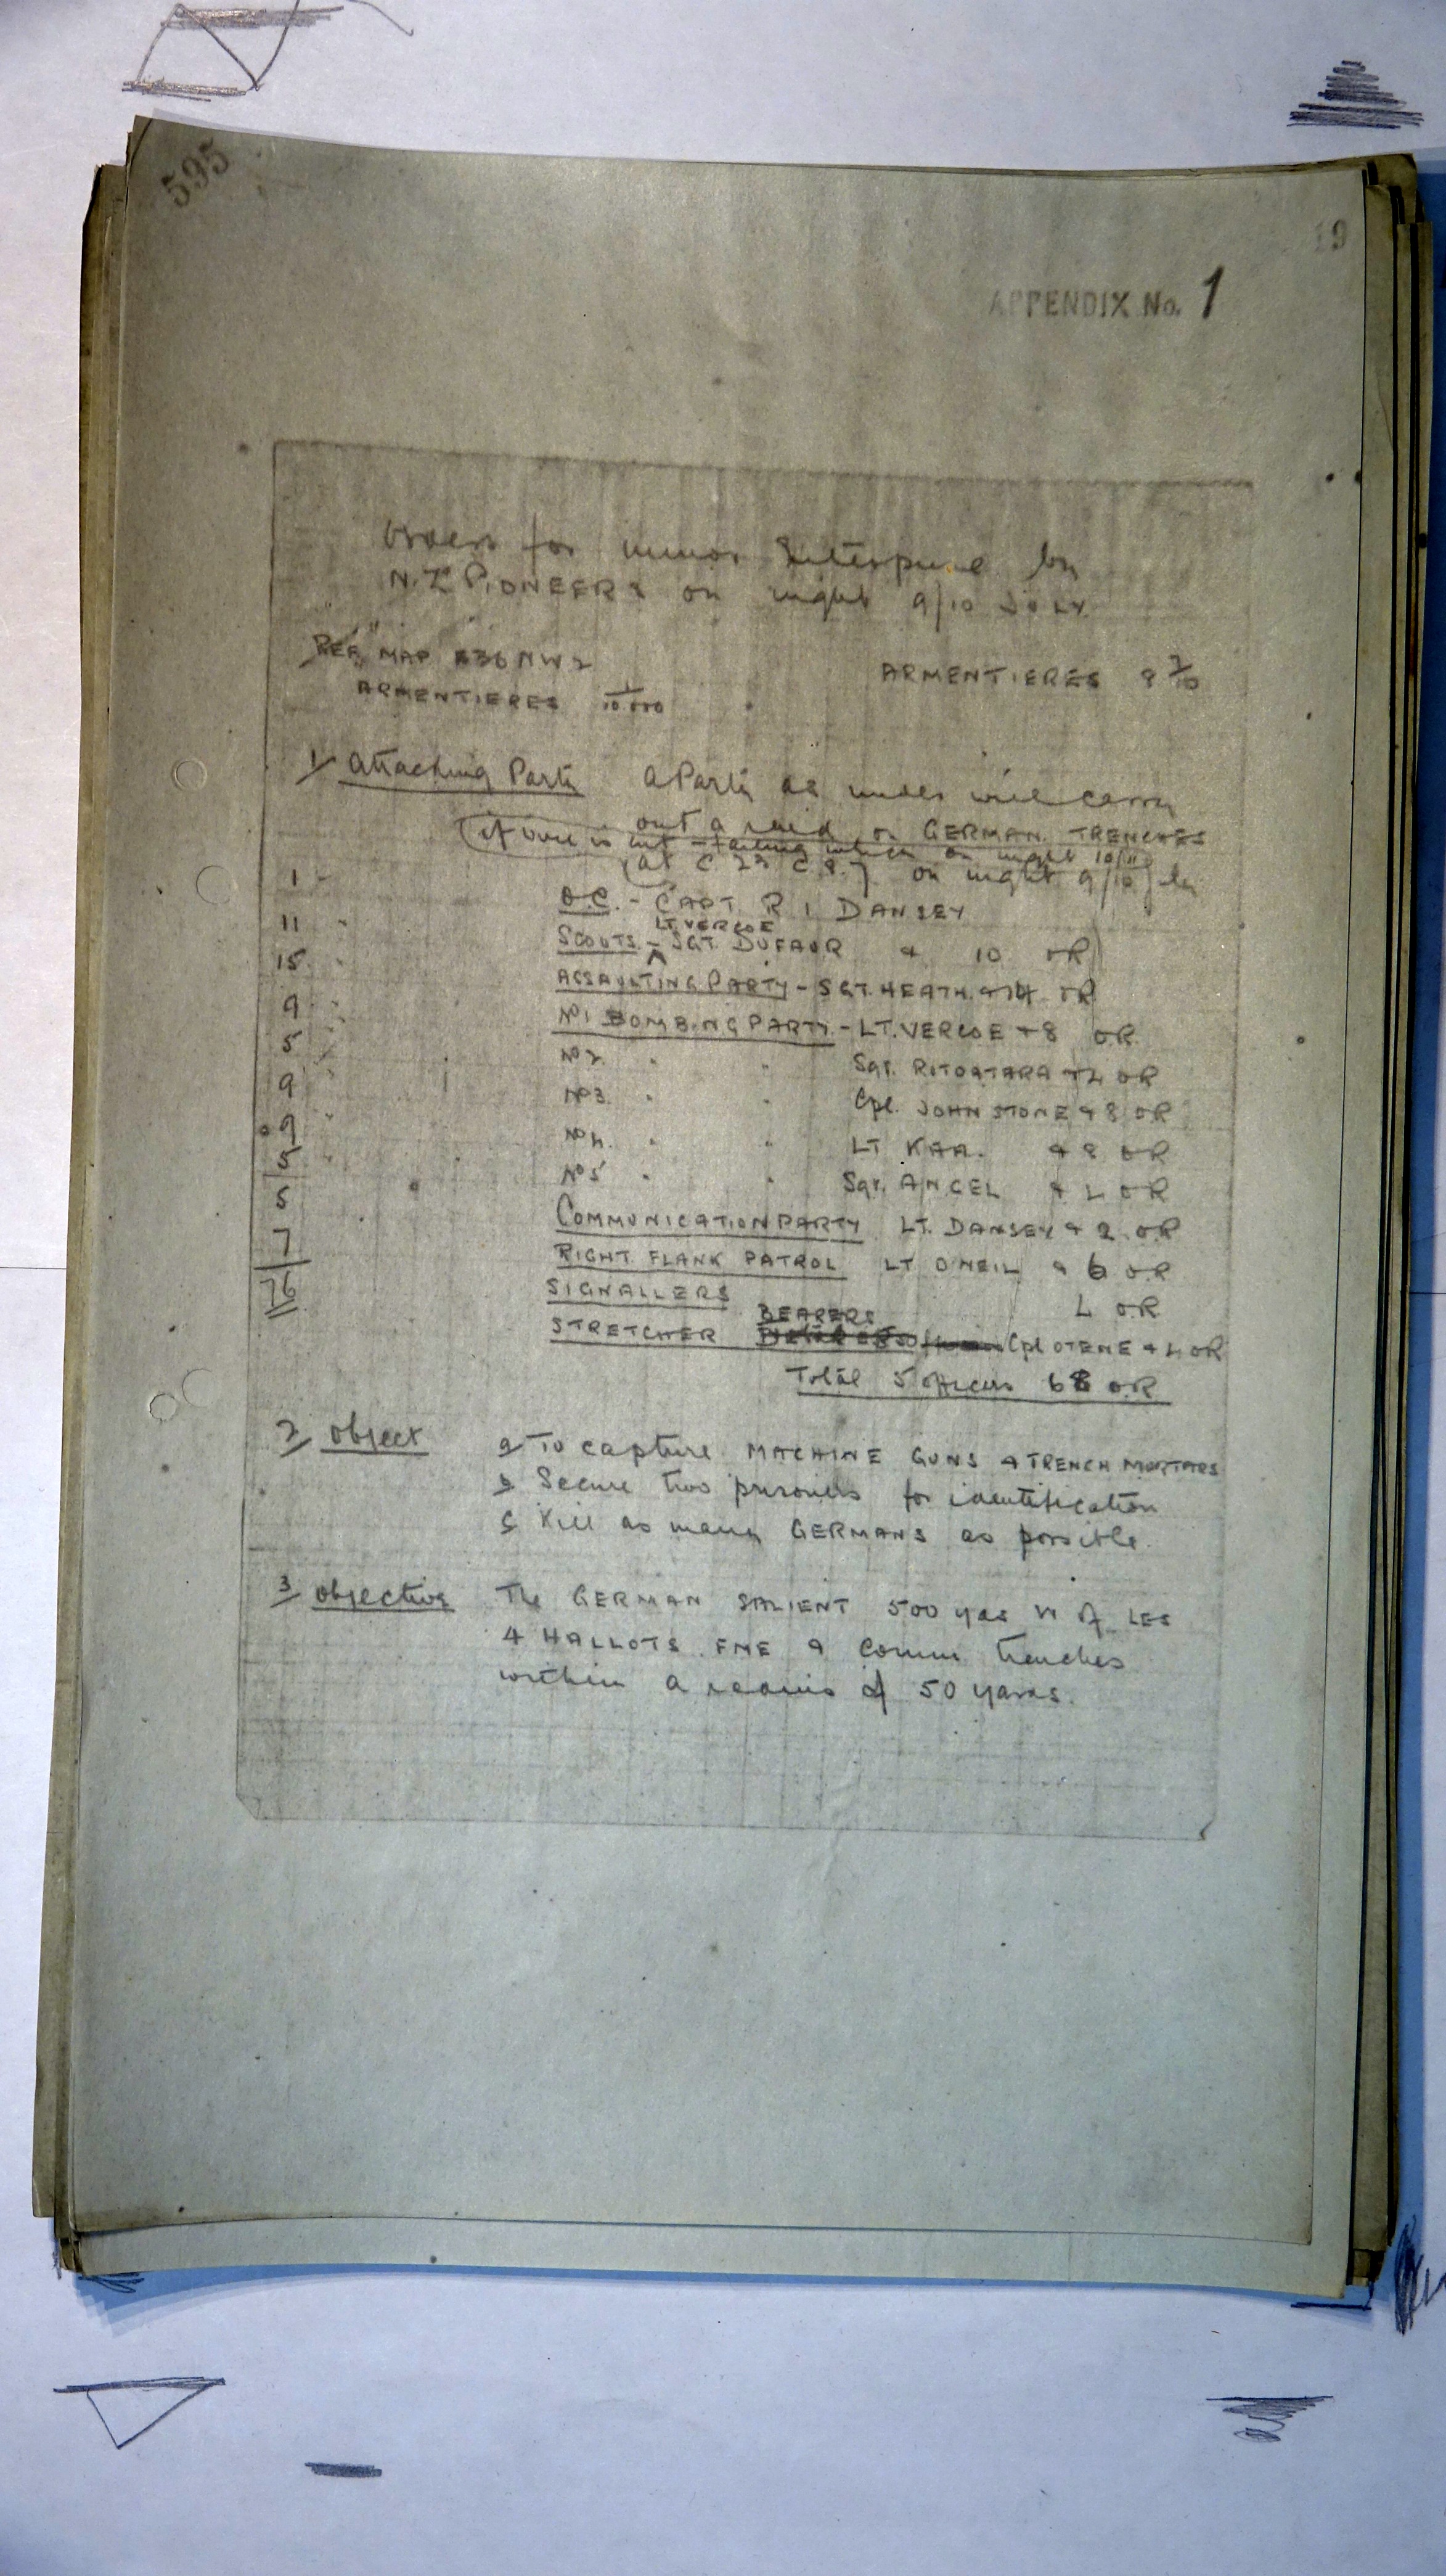 595
19
APPENDIX No. 1
Orders for minor Enterprise by
N.Z PIONEERS on night 9/10 JULY.
REF MAP 36 NW 2
ARMENTIERES 1/10000
ARMENTIERES 9/7/
1/ Attacking Party A Party as under will carry
out a raid on GERMAN TRENCHES
(if wire is cut - failing which on night 10/11)
(at C 23 C 8.7) on night 9/10 July
1 O.C. - CAPT R I DANSEY
LT. VERCOE
11 SCOUTS - SGT. DUFAUR & 10 OR
15 ASSAULTING PARTY - SGT. HEATH & 14 OR
9 No 1 BOMBING PARTY - LT. VERCOE + 8 O.R.
5 No 2. " " Sgt. RITOATARA + 4 OR
9 No 3. " " Cpl. JOHNSTONE & 8 OR
9 No 4. " " LT KAA. & 8 OR
5 No 5 " " Sgt. ANGEL & 4 OR
5 COMMUNICATION PARTY LT. DANSEY & 2 O.R
7 RIGHT FLANK PATROL LT ONEIL & 6 O.R
76 SIGNALLERS 4 O.R
BEARERS
STRETCHER Cpl OTENE & 4 OR
Total 5 officers 68 O.R
2/ Object a To capture MACHINE GUNS & TRENCH MORTARS
b Secure two prisoners for identification
c Kill as many GERMANS as possible.
3/ Objective The GERMAN SALIENT 500 yds W of LES
4 HALLOTS FME & Comm trenches
within a radius of 50 yards.